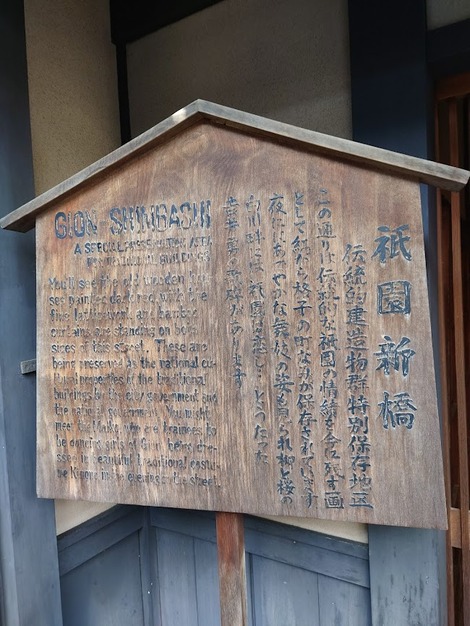 祇園新橋
伝統的建造物群特別保存地区
この通りは伝統的な祇園の情緒を今に残す一画
として細かな格子の町なみが保存されています
夜にはあでやかな舞妓の姿も見られ柳と桜の
白川畔には 祇園は恋し…とうたった
吉井勇の歌碑があります
GION SHINBASHI
A SPECIAL PRESERVATION AREA
You'll see the old wooden hou-
ses painted dark red with the
fine latticework and bamboo
curtains are standing on both
sides of this street. These are
being preserved as the national cu-
ltural properties of the traditional
buildings by the city government and
the national government. You might
meet the Maiko, who are trainees to
be dancing girls of Gion, being dre-
ssed in beautiful traditional costu-
me Kimono in the evening on the street.